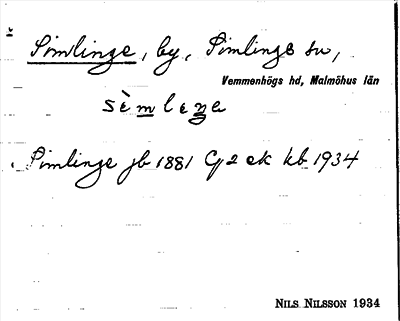 Simlinge, by, Simlinge sn,
Vemmenhögs hd, Malmöhus län
sèmleŋa
Simlinge jb 1881 G 2 ek kb 1934
NILS NILSSON 1934